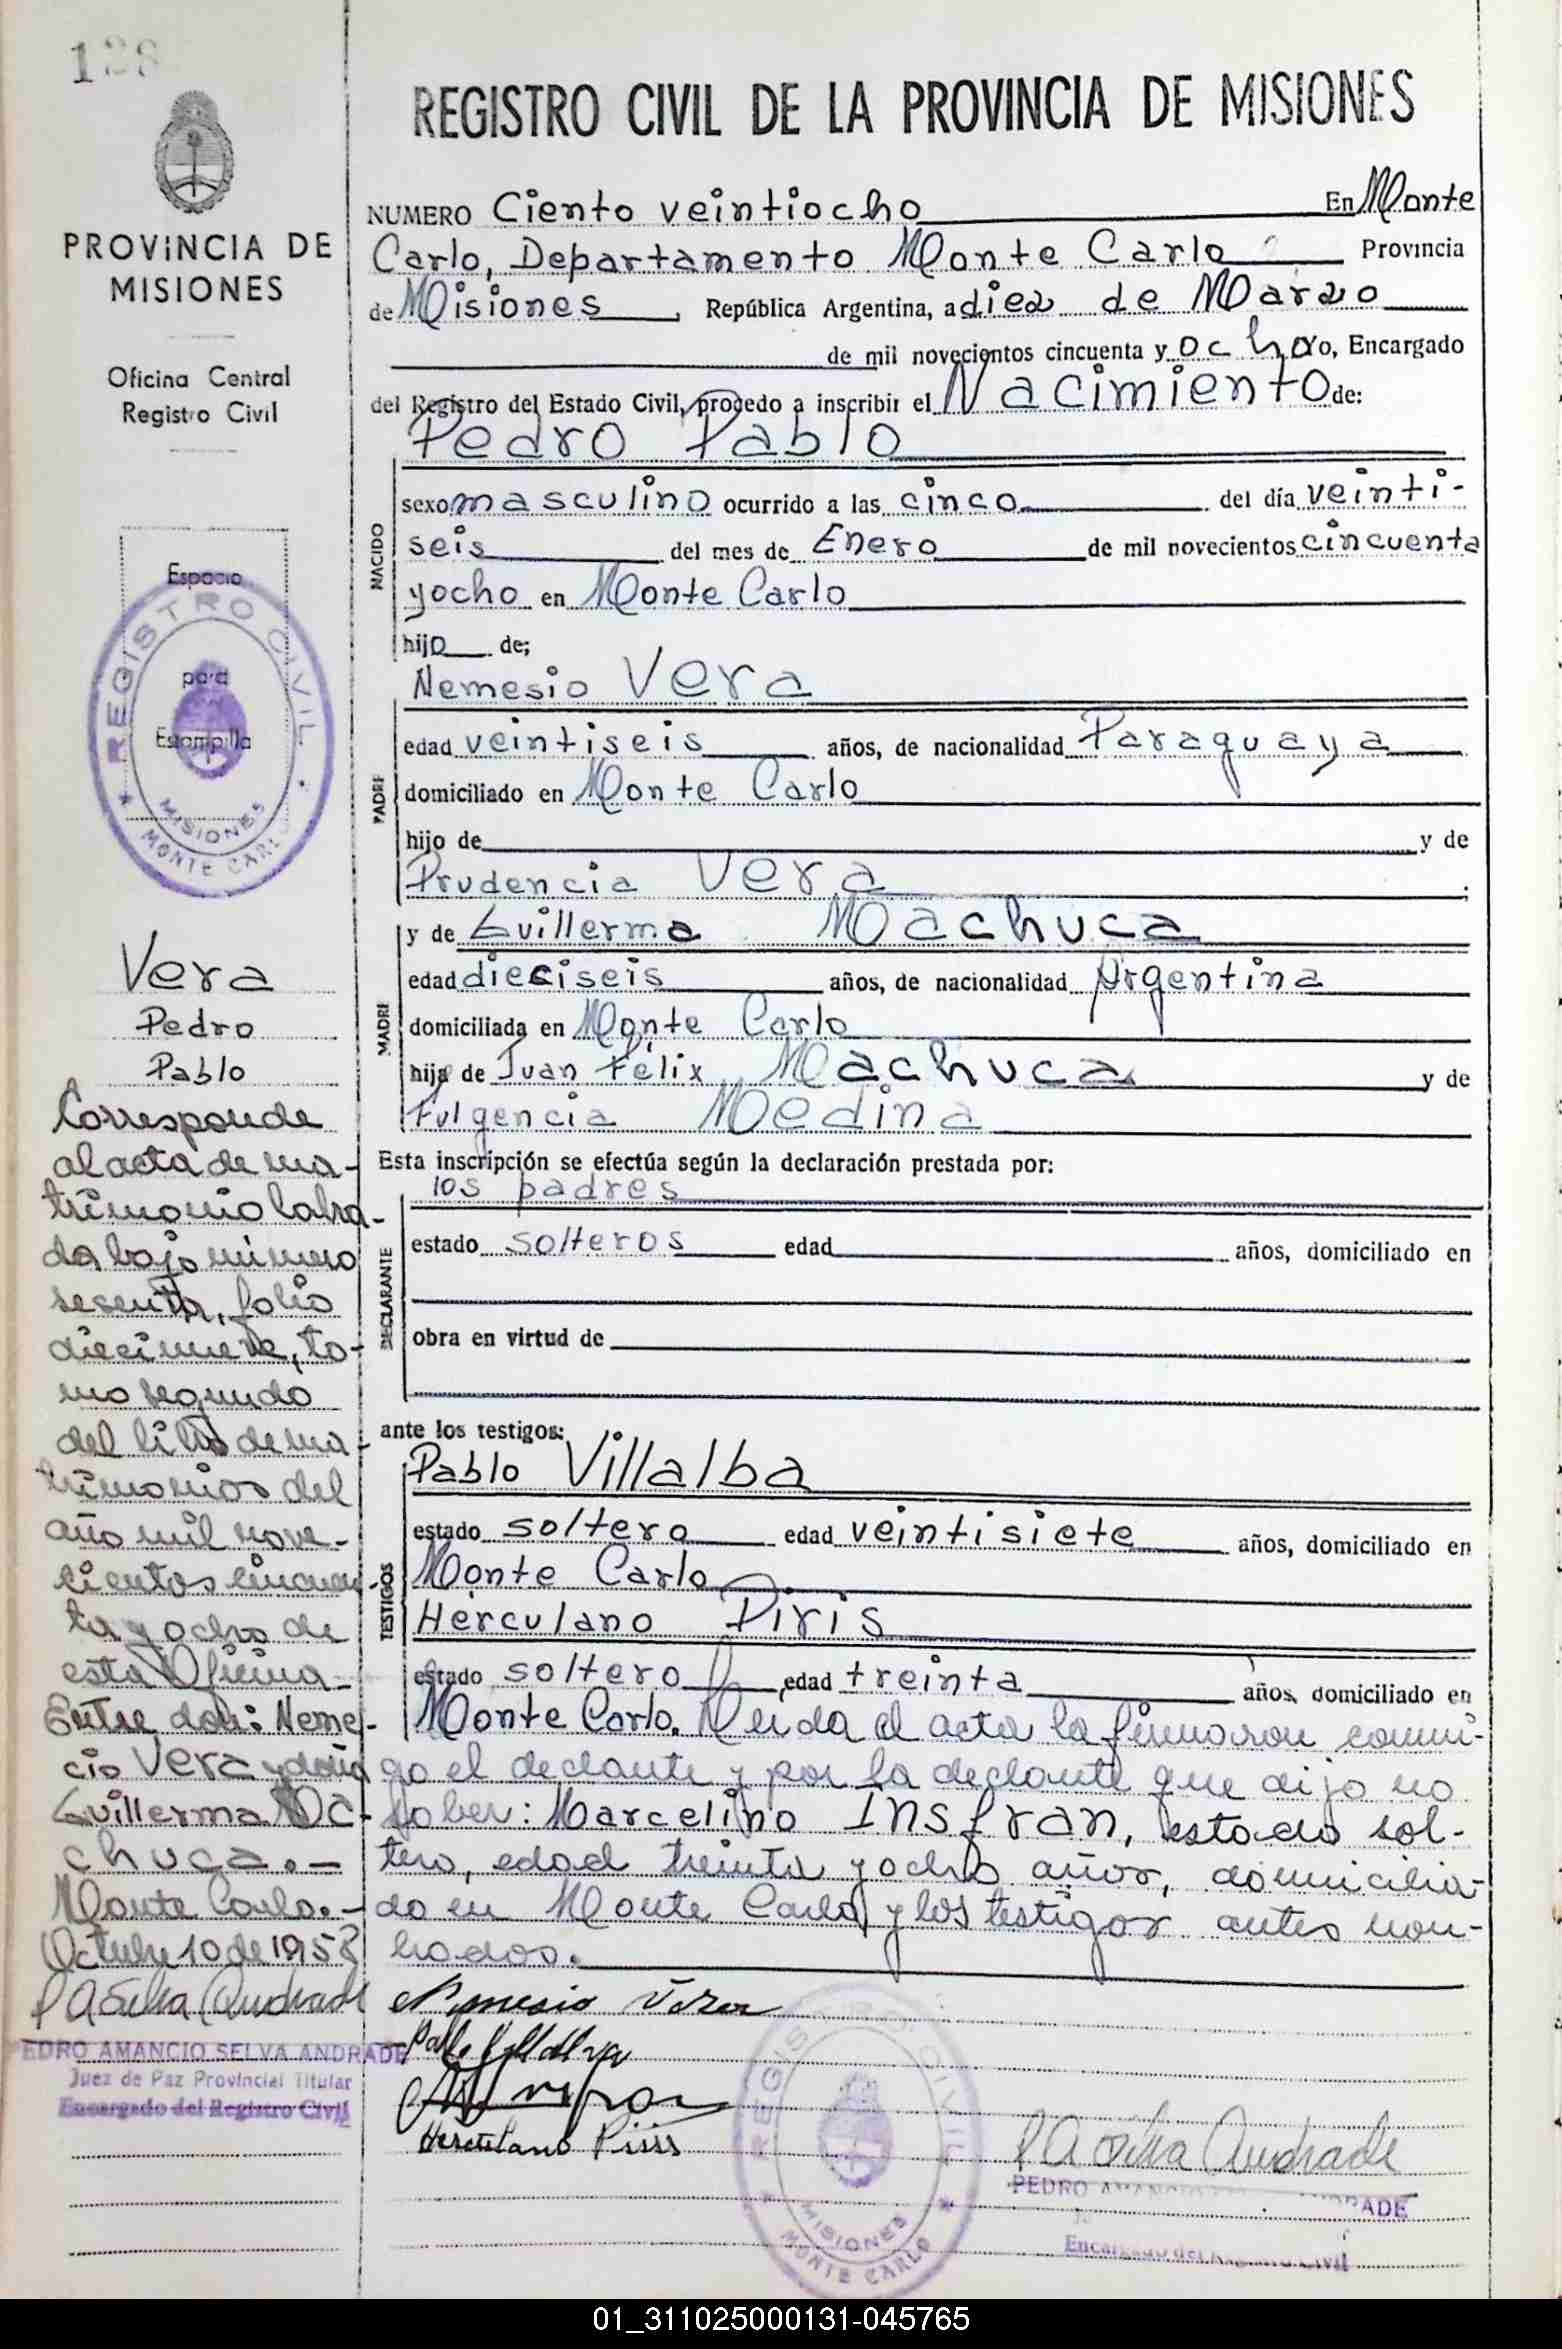 128
PROVINCIA DE
MISIONES
Oficina Central
Registro Civil
Espacio
para
Estampilla
REGISTRO CIVIL
MISIONES
MONTE CARLO
Vera
Pedro
Pablo
Corresponde
al acta de ma-
trimonio labra-
da bajo número
sesenta, folio
diecinueve, to-
mo segundo
del libro de ma-
trimonios del
año mil nove-
cientos cincuen-
ta y ocho de
esta Oficina
Entre don: Neme-
cio Vera y doña
Guillerma Ma-
chuca.-
Monte Carlo.-
Octubre 10 de 1958
P A Selva Andrade
PEDRO AMANCIO SELVA ANDRADE
Juez de Paz Provincial Titular
Encargado del Registro Civil
REGISTRO CIVIL DE LA PROVINCIA DE MISIONES
NUMERO Ciento veintiocho En Monte
Carlo, Departamento Monte Carlo Provincia
de Misiones, República Argentina, a diez de Marzo
de mil novecientos cincuenta y ocho yo, Encargado
del Registro del Estado Civil, procedo a inscribir el Nacimiento de:
NACIDO
Pedro Pablo
sexo masculino ocurrido a las cinco del día veinti-
seis del mes de Enero de mil novecientos cincuenta
y ocho en Monte Carlo
hijo de;
PADRE
Nemesio Vera
edad veintiseis años, de nacionalidad Paraguaya
domiciliado en Monte Carlo
hijo de y de
Prudencia Vera;
MADRE
y de Guillerma Machuca
edad dieciseis años, de nacionalidad Argentina
domiciliada en Monte Carlo
hija de Juan Félix Machuca y de
Fulgencia Medina
Esta inscripción se efectúa según la declaración prestada por:
DECLARANTE
los padres
estado solteros edad años, domiciliado en
obra en virtud de
ante los testigos:
TESTIGOS
Pablo Villalba
estado soltero edad veintisiete años, domiciliado en
Monte Carlo
Herculano Piris
estado soltero edad treinta años, domiciliado en
Monte Carlo. Leida el acta la firmaron conmi-
go el declante y por la declante que dijo no
saber: Marcelino Insfran, estado sol-
tero, edad treinta y ocho años, domicilia-
do en Monte Carlo y los testigos antes nom-
brados.
Nemesio Vera
Pablo Villalva
Herculano Piris
REGISTRO CIVIL
MISIONES
MONTE CARLO
P A Selva Andrade
PEDRO AMANCIO ANDRADE
Encargado del Registro Civil
01_311025000131-045765